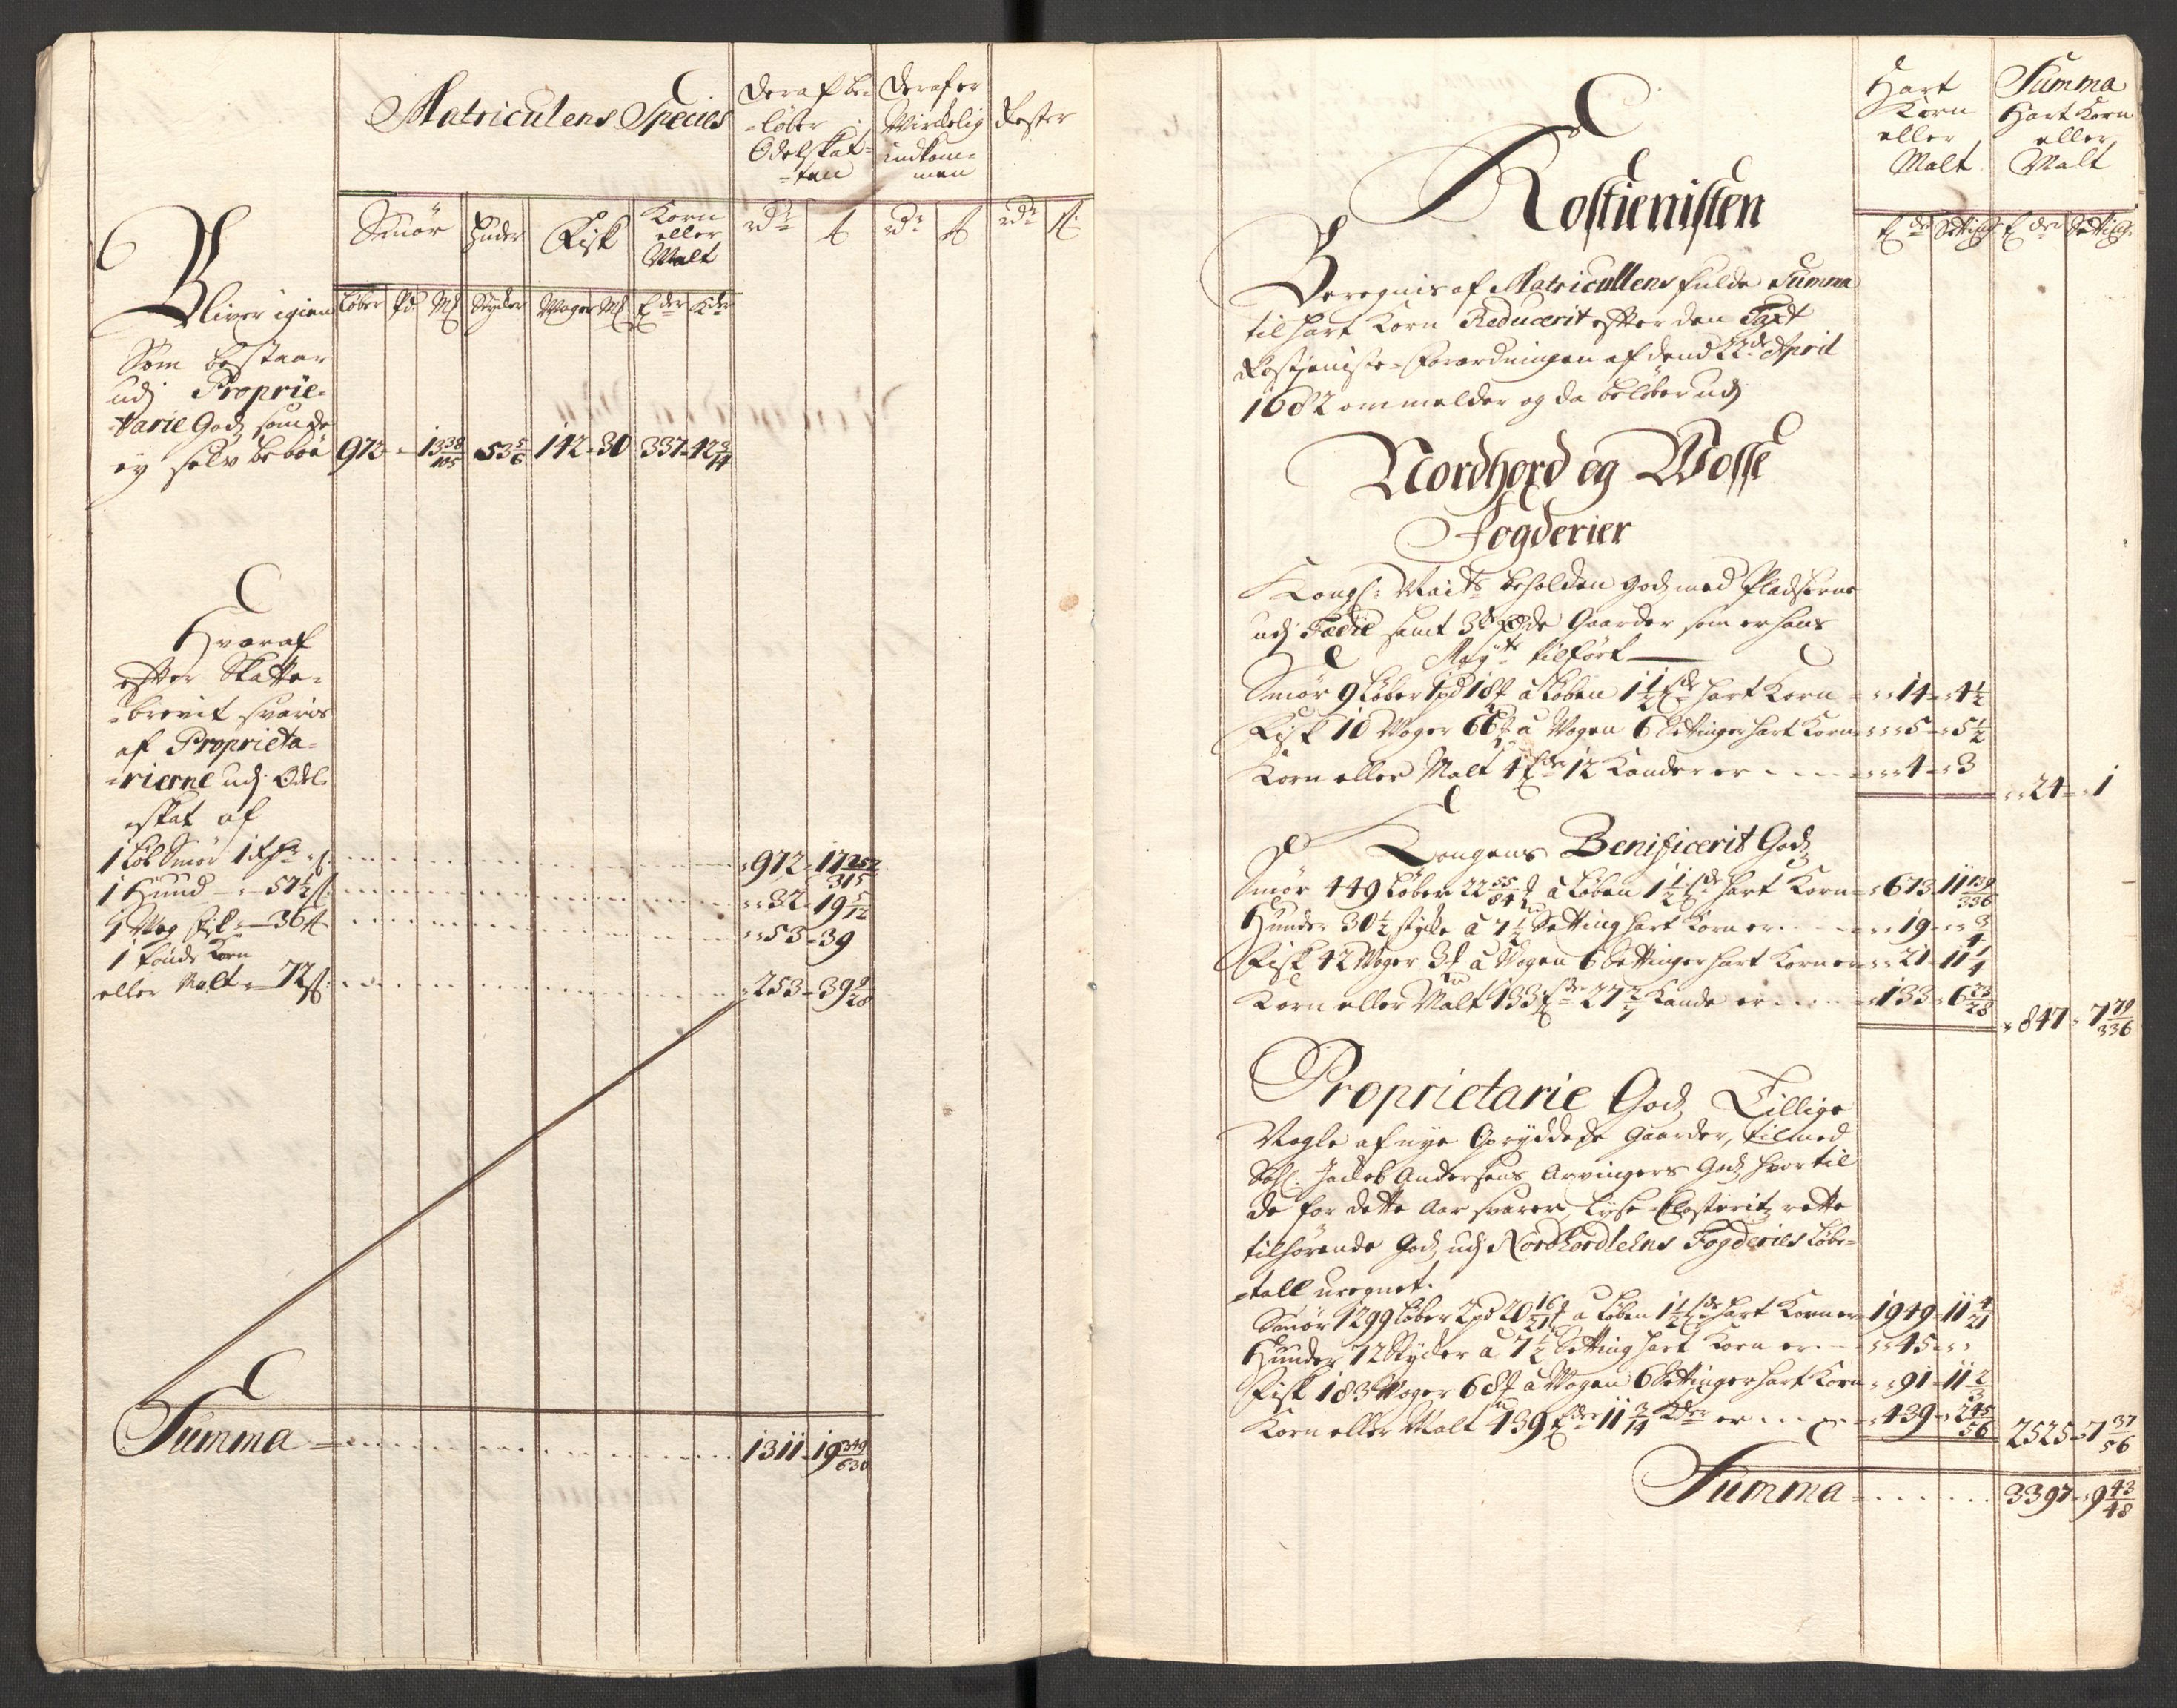 Matriculens Species
Deraf be-
-løber
Odelskat-
-ten
Deraf er
Wirkelig
indkom-
men
Rester
Smör
Huder
Fisk
Korn
eller
Malt
rdr ß rdr ß rdr ß
Bliver igien
Løber Pd. Mk Stycker Woger Mk Tdr Kdr
Som bestaar
udj Proprie-
tarie Gods som de
ey selv beboe 972 - 13 38/105 53 5/6 142 - 30 337 - 42 3/14
Hvoraf
efter Skatte-
brevit svaris
af Proprieta-
-rierne udj Odel-
skat af
1 Løb Smör 1 Rdr - ß 972 - 17 252/315
1 Hud - - 57 1/2 ß 32 - 19 5/12
1 Wog Fisk - 36 ß 53 - 39
1 Tønde Korn
eller Malt - 72 ß 253 - 39 9/28
Summa 1311 - 19 349/630
Hart
Korn
eller
Malt
Summa
Hart Korn
eller
Malt
Rostienisten
Tdr Setting Tdr Setting
Beregnis af Matricullens fulde Summa
til hart Korn Reducerit efter den Taxt
Rostienste-Forordningen af dend 22de April
1682 ommelder og da beløber udj
Nordhord og Wosse
Fogderier
Kongl: Maits beholden Gods med Pladserne
udj samt 3de øde Gaarder som er hans
Mayts tilført
Smör 9 Løber 1 pd 18 à Løben 1 1/2 Tde hart Korn 14 - 4 1/2
Fisk 10 Woger 66 à Wogen 6 Settinger hart Korn 5 - 5 1/2
Korn eller Malt 4 Tdr 12 Kander er 4 - 3
24 - 1
Kongens Benificerit Gods
Smör 449 Løber 22 55/84 à Løben 1 1/2 Tde hart Korn 673 11 139/336
Hunder 30 1/2 stycke à 7 1/2 Setting hart Korn er 19 - 3/4
Fisk 42 Woger 3 à Wogen 6 Settinger hart Korn er 21 - 11 1/4
Korn eller Malt 133 Tdr 27 2/7 Kande er 133 - 6 23/28
847 - 7 79/336
Proprietarie Gods Tillige
Nogle af nye Opryddede Gaarder, tilmed
Sahl: Jacob Andersens Arvingers Gods hvortil
de for dette Aar svarer, Lyse-Closterits rette
tilhørende Gods udj Nordhordlehns Fogderies Løbe-
-tall uregnet.
Smör 1299 Løber 2 pd 20 16/21 à Løben 1 1/2 Tde hart Korn er 1949 - 11 4/21
Hunder 72 Stycker à 7 1/2 Setting hart Korn er 45
Fisk 183 Woger 68 à Wogen 6 Settinger hart Korn 91 - 11 2/3
Korn eller Malt 439 Tdr 11 3/14 Kdr er 439 - 2 45/56
2525 - 7 37/56
Summa 3397 - 9 43/48